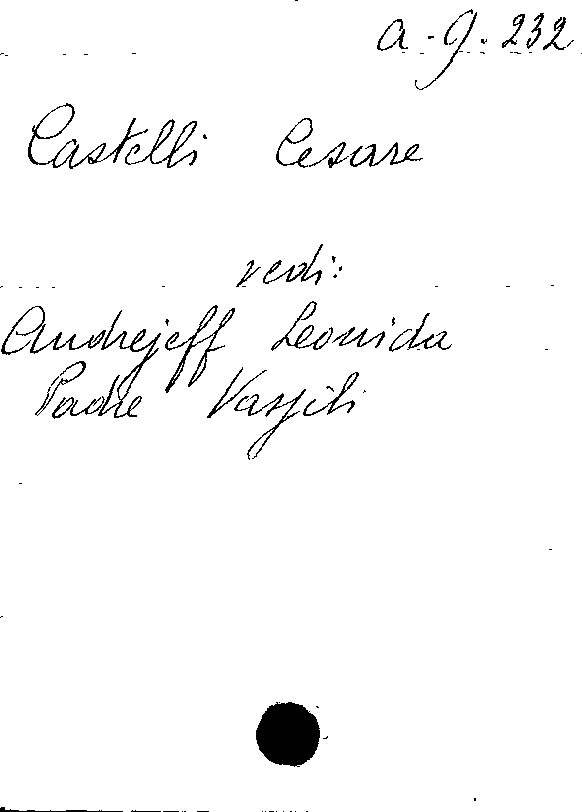 a-g. 232
Castelli Cesare
vedi:
Andrejeff Leonida
Padre Vasjili